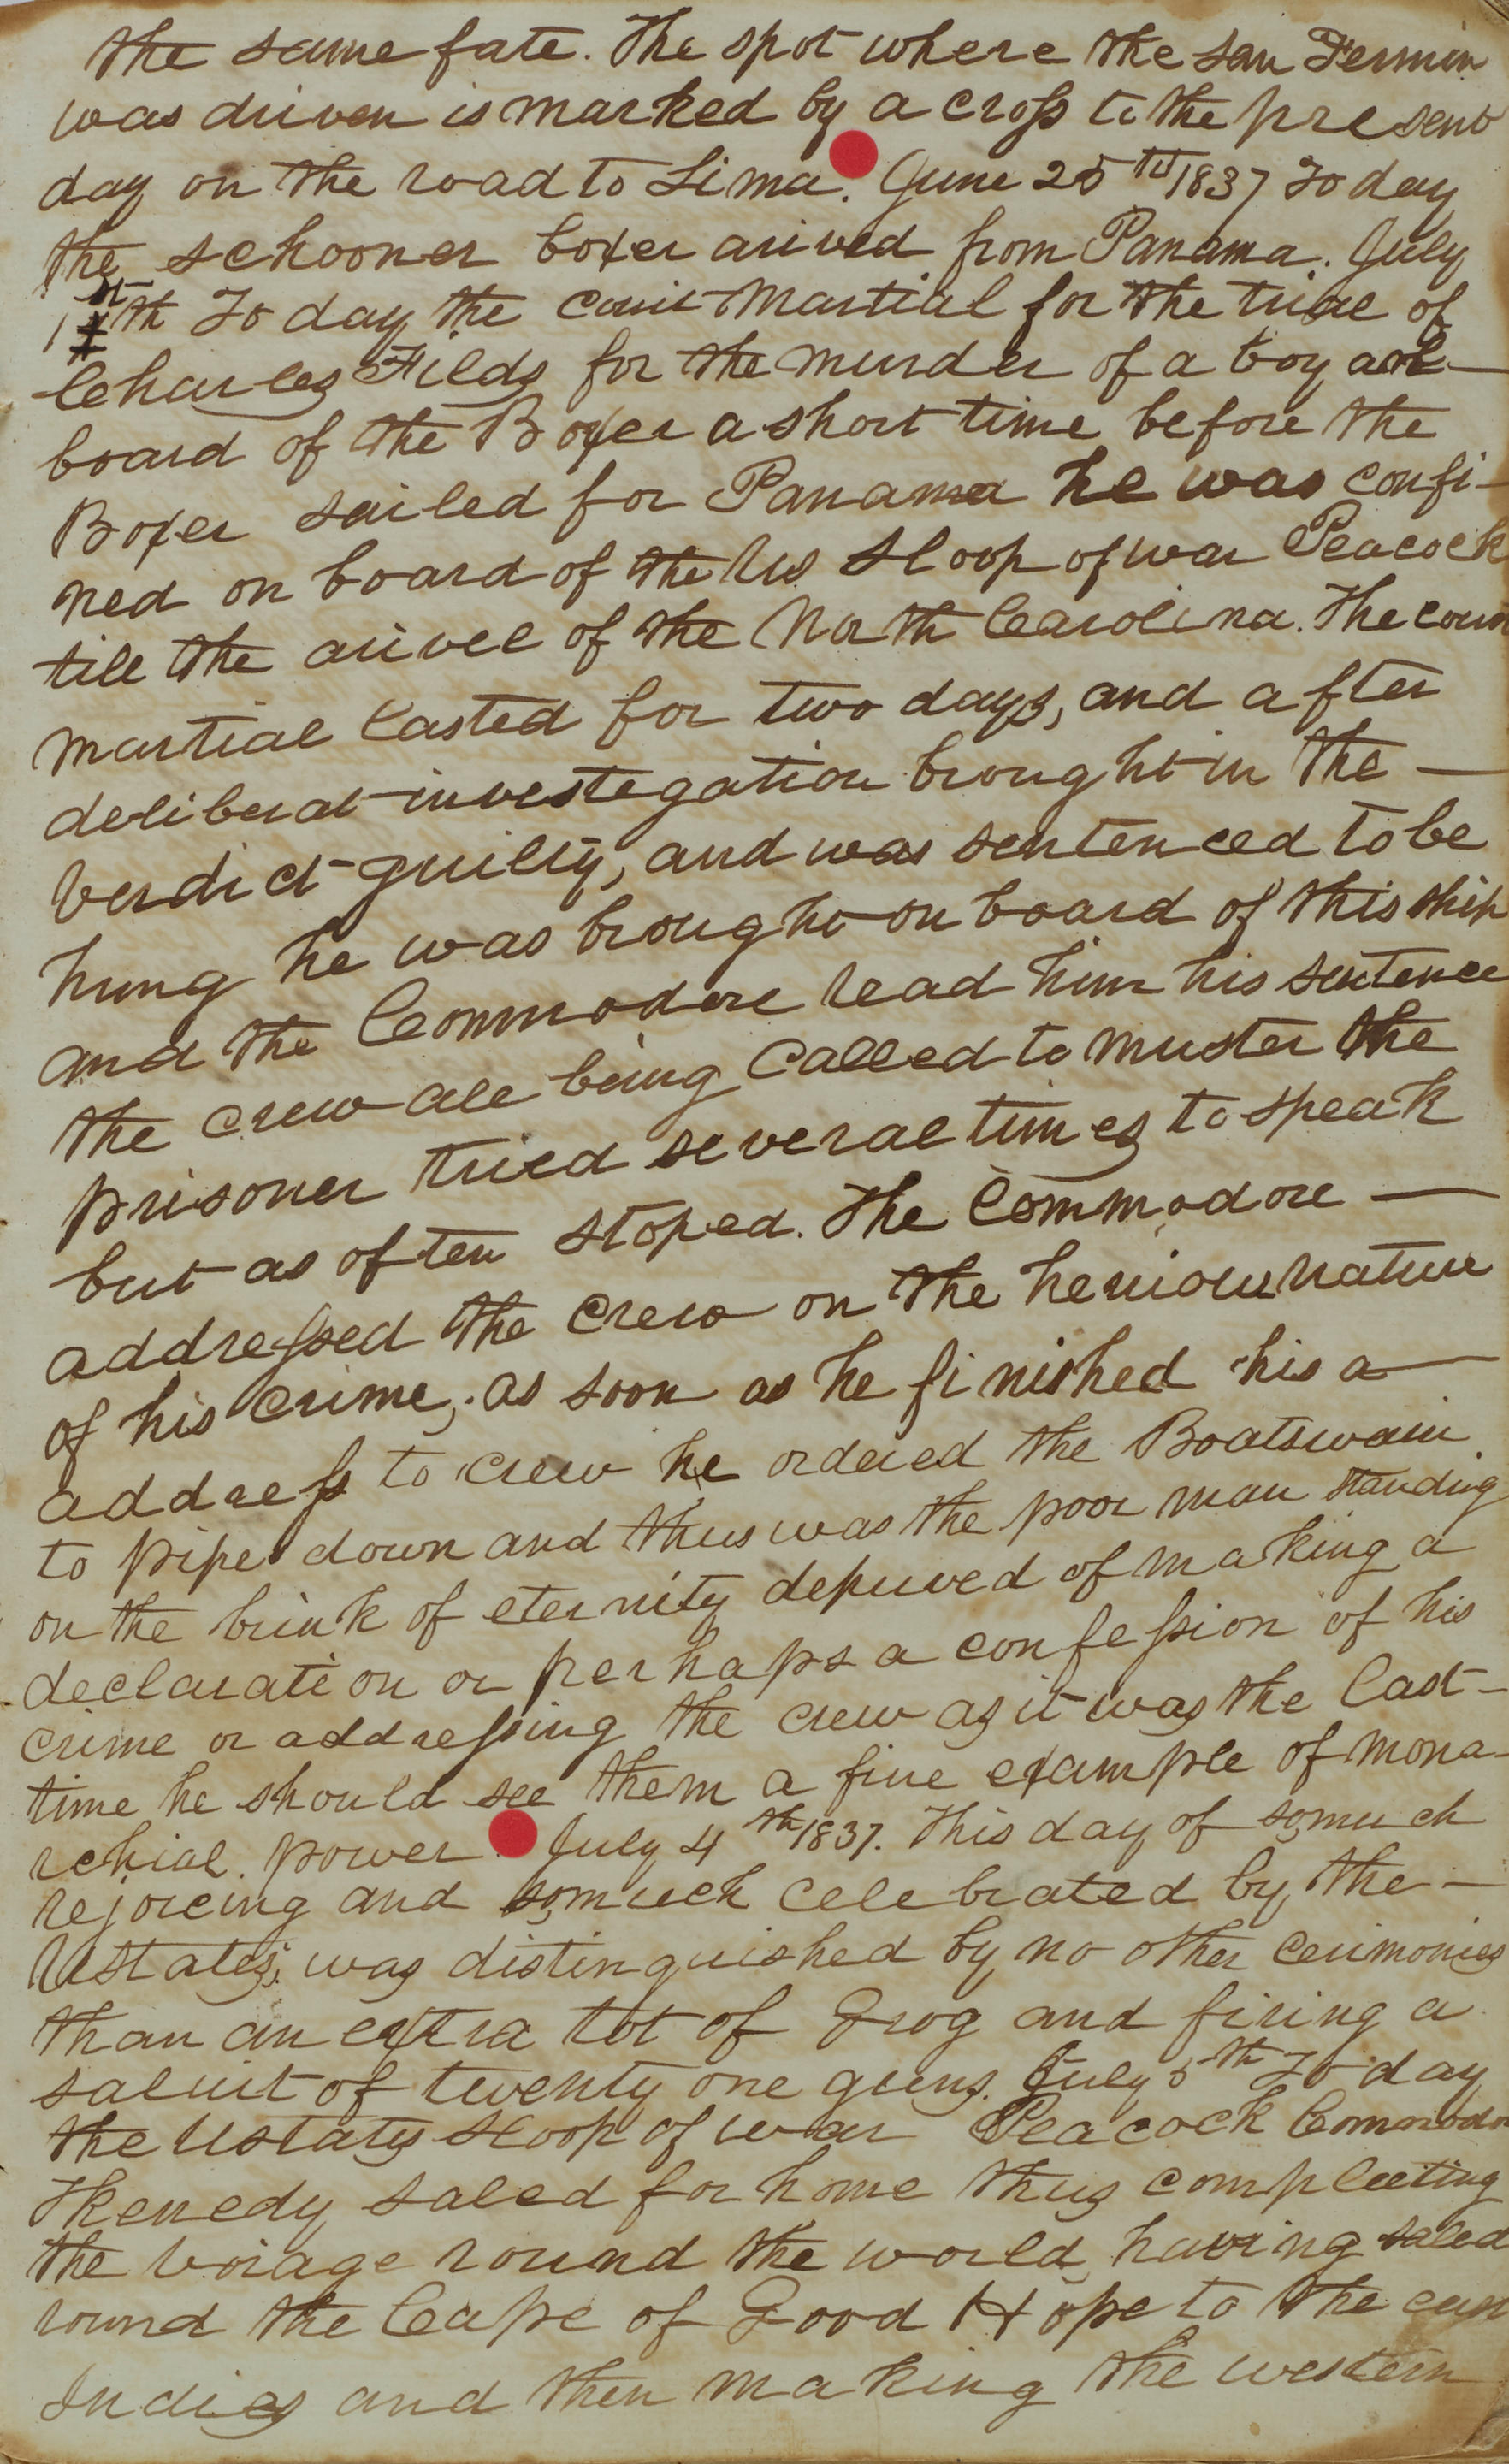 the same fate. The spot where the San Fermin
was driven is marked by a cross to the present
day on the road to Lima. June 25th 1837 To day
the schooner boxer arived from Panama. July
1st th To day the court Martial for the trial of
Charles Filds for the murder of a boy on
board of the Boxer a short time before the
Boxer sailed for Panama he was confi-
ned on board of the Us Sloop of war Peacock
till the arivel of the North Carolina. The cour
martial lasted for two days, and after
deliberat investegation brought in the —
Verdict guilty, and was sentenced to be
hung he was brought on board of this ship
and the Commodore read him his sentence
the crew all being Called to muster the
prisoner tried several times to speak
but as often stoped. The Commodore —
addressed the crew on the henious nature
of his crime, as soon as he finished his a—
address to crew he ordered the Boatswain
to pipe down and thus was the poor man standing
on the brink of eternity deprived of making a
declaration or perhaps a confession of his
crime or addressing the crew as it was the last —
time he should see them a fine example of mona-
rchial power. July 4th 1837. This day of somuch
rejoicing and somuch celebrated by the —
UStates, was distinguished by no other cerimonies
than an extra tot of Grog and firing a
saluit of twenty one guns. July 5th To day
the Ustates Sloop of war Peacock Commodo
Kenedy saled for home thus compleeting
the voiage round the world, having saled
round the Cape of Good Hope to the east
Indies and then making the western